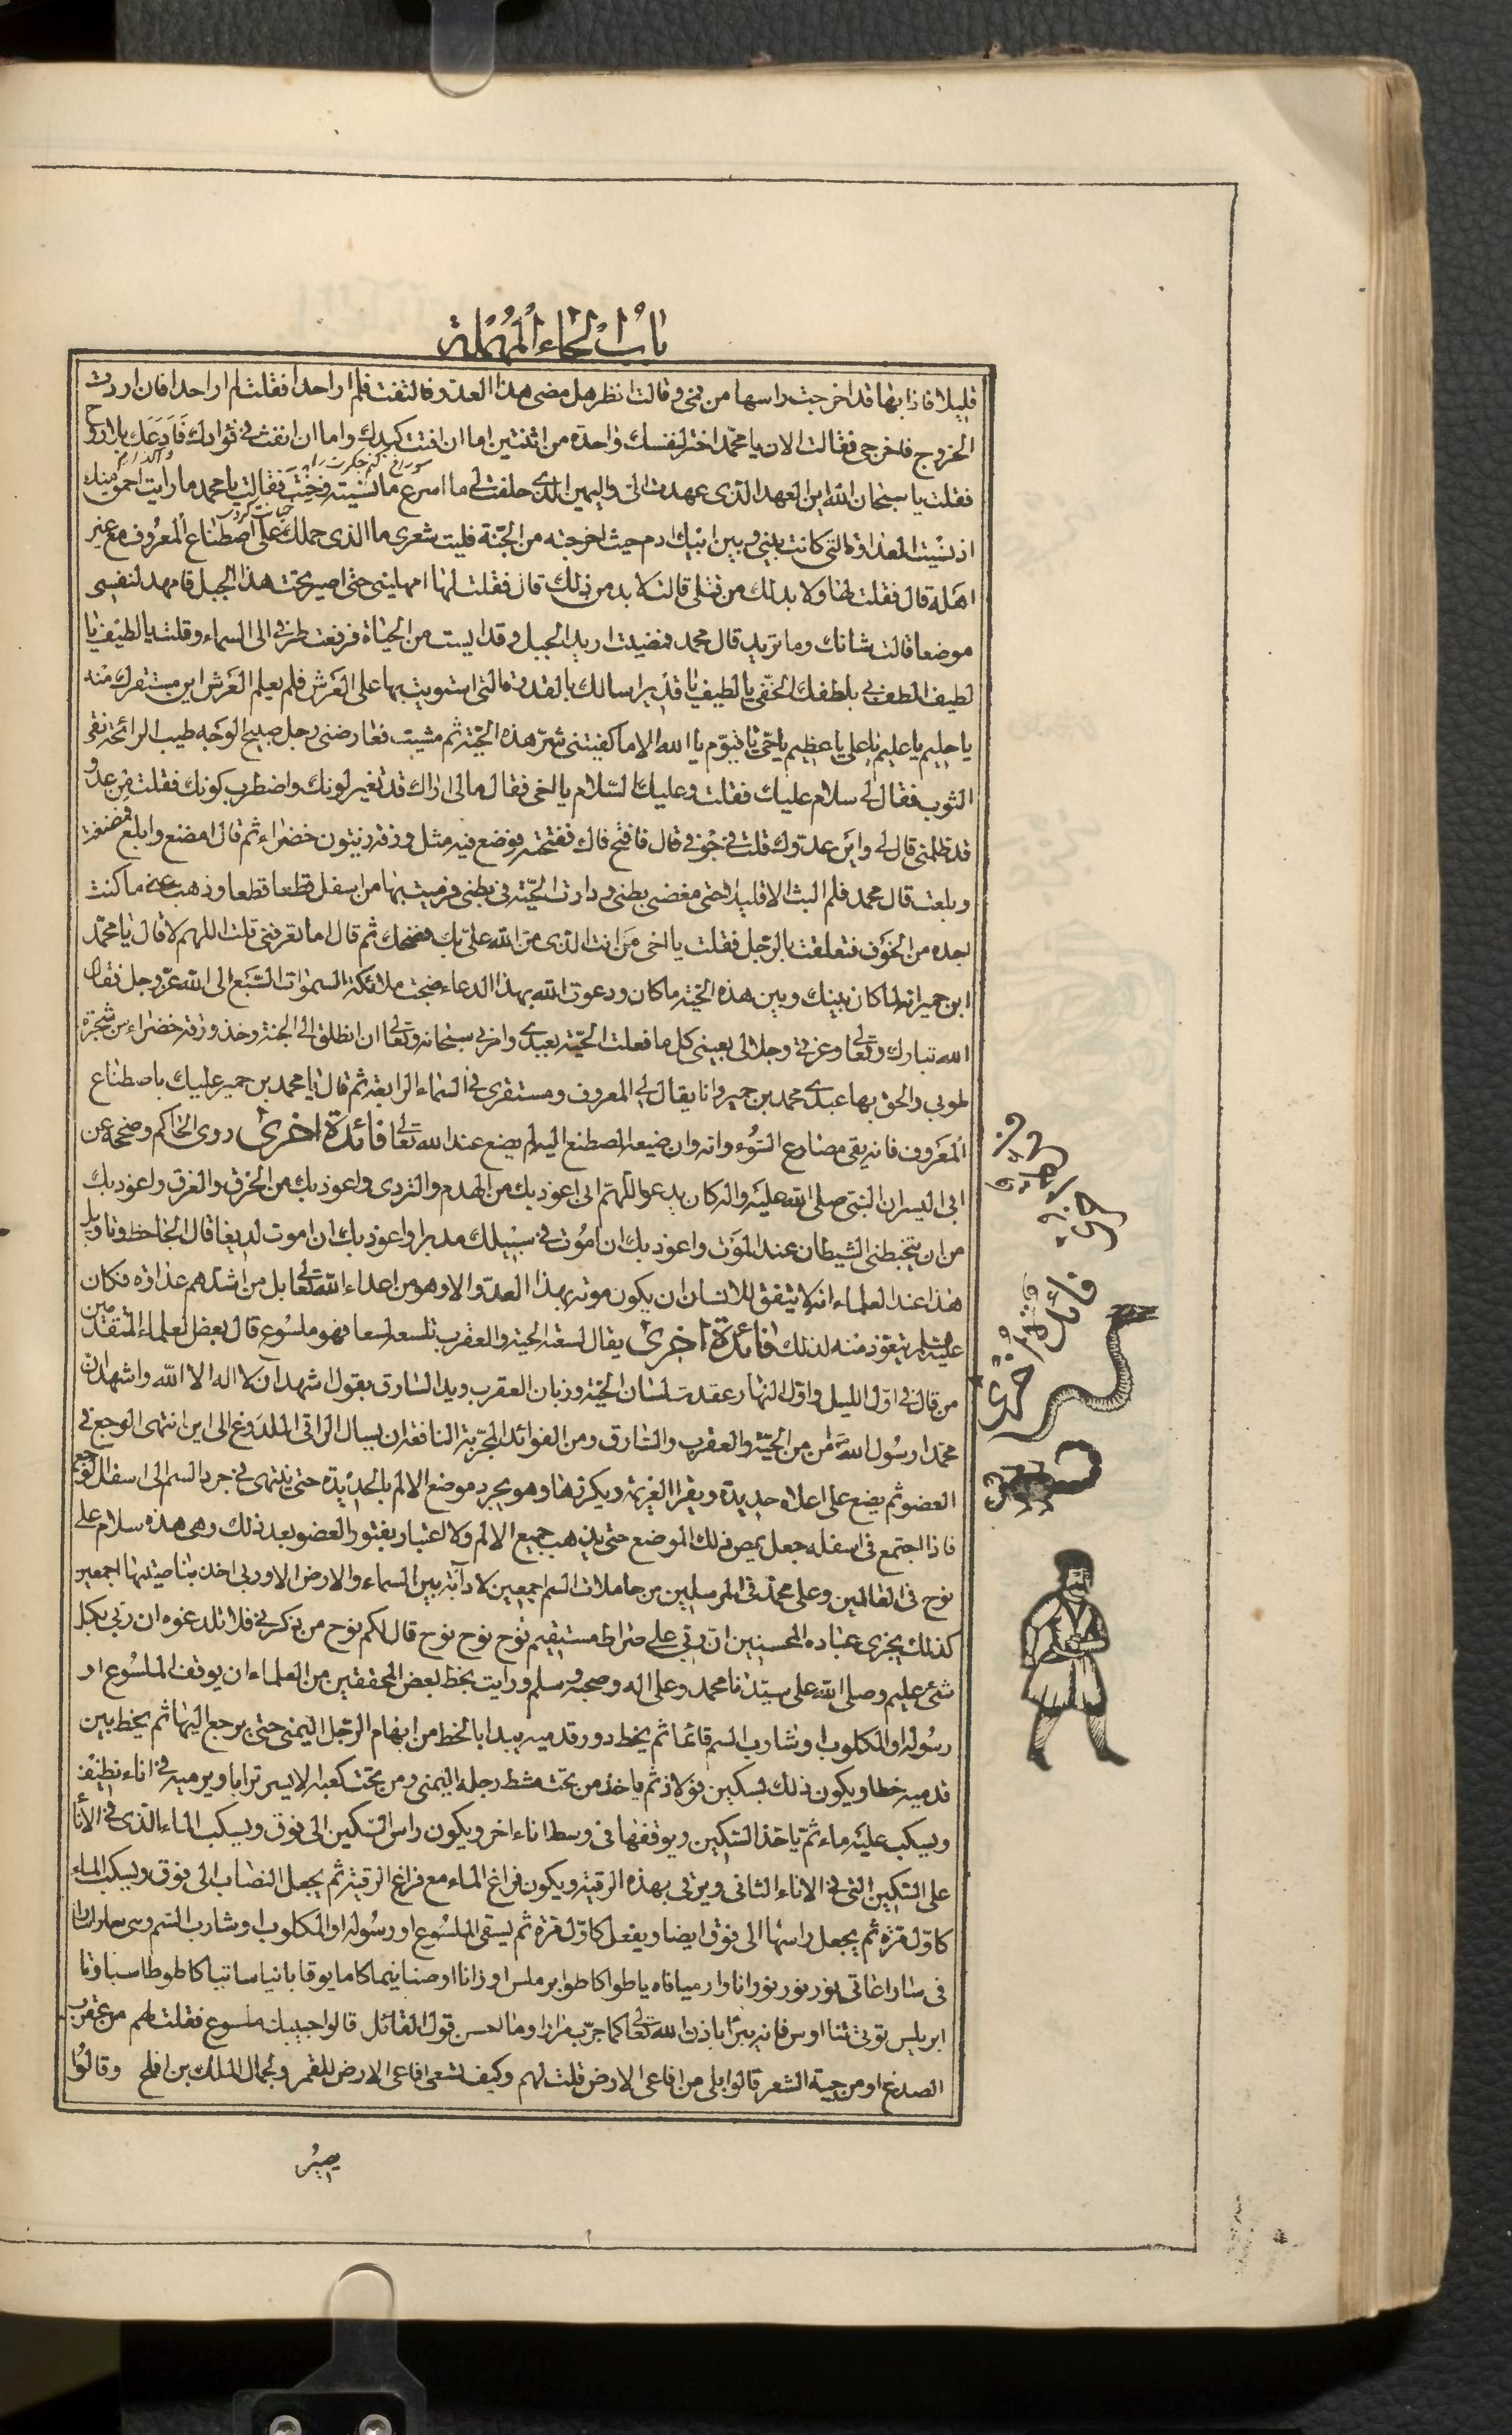 باب الحاء المهملة
قليلا فاذا بها قد اخرجت راسها من فمى وقالت انظر هل مضى هذا العدو فالتفت فلم ار احدا فقلت لم ار احدا فان اردت
الخروج فاخرجى فقالت الان يا محمد اختر لنفسك واحدة من اثنتين اما ان افتت كبدك واما ان انفث فى فؤادك فادعك بلا روح
فقلت يا سبحان الله اين العهد الذى عهدت الى واليمين الذى حلفت لى ما اسرع ما نسيته وخنت فقالت يا محمد ما رايت احمق منك
اذ نسيت العداوة التى كانت بينى وبين ابيك ادم حيث اخرجته من الجنة فليت شعرى ما الذى حملك على اصطناع المعروف مع غير
اهله قال فقلت لها ولا بد لك من قتلى قالت لا بد من ذلك قال فقلت لها امهلينى حتى اصير تحت هذا الجبل فامهد لنفسى
موضعا قالت شانك وما تريد قال محمد فمضيت اريد الجبل وقد ايست من الحياة فرفعت طرفى الى السماء وقلت يا لطيف يا
لطيف الطف بى بلطفك الخفى يا لطيف يا قدير اسالك بالقدرة التى استويت بها على العرش فلم يعلم العرش اين مستقرك منه
يا حليم يا عليم يا على يا عظيم يا حى يا قيوم يا الله الا ما كفيتنى شر هذه الحية ثم مشيت فعارضنى رجل صبيح الوجه طيب الرائحة نقى
الثوب فقال لى سلام عليك فقلت وعليك السلام يا اخى فقال ما لى اراك قد تغير لونك واضطرب كونك فقلت من عدو
قد ظلمنى قال لى واين عدوك قلت فى جوفى قال فافتح فاك ففتحته فوضع فيه مثل ورقة زيتون خضراء ثم قال امضغ وابلع فمضغت
وبلعت قال محمد فلم البث الا قليلا حتى مغصنى بطنى ودارت الحية فى بطنى فرميت بها من اسفل قطعا قطعا وذهب عنى ما كنت
اجده من الخوف فتعلقت بالرجل فقلت يا اخى من انت الذى من الله على بك فضحك ثم قال اما تعرفنى قلت اللهم لا قال يا محمد
ابن حمير انه لما كان بينك وبين هذه الحية ما كان ودعوت الله بهذا الدعاء ضجت ملائكة السموات السبع الى الله عز وجل فقال
الله تبارك وتعالى وعزتى وجلالى بعينى كل ما فعلت الحية بعبدى وامرنى سبحانه وتعالى ان انطلق الى الجنة وخذ ورقة خضراء من شجرة
طوبى والحق بها عبدى محمد بن حمير وانا يقال لى المعروف ومستقرى فى السماء الرابعة ثم قال يا محمد بن حمير عليك باصطناع
المعروف فانه يقى مصارع السوء وانه وان ضيعه المصطنع اليه لم يضع عند الله تعالى فائدة اخرى روى الحاكم وصححه عن
ابى اليسر ان النبى صلى الله عليه واله كان يدعو اللهم انى اعوذ بك من الهدم والتردى واعوذ بك من الحرق والغرق واعوذ بك
من ان يتخبطنى الشيطان عند الموت واعوذ بك ان اموت فى سبيلك مدبرا واعوذ بك ان اموت لديغا قال الجاحظ وتاويل
هذا عند العلماء انه لا يتفق للانسان ان يكون موته بهذا العدو الا وهو من اعداء الله تعالى بل من اشدهم عداوة فكان
عليه السلام يتعوذ منه لذلك فائدة اخرى يقال لسعته الحية والعقرب تلسعه لسعا فهو ملسوع قال بعض العلماء المتقدمين
من قال فى اول الليل واول النهار عقدت لسان الحية وزبان العقرب ويد السارق بقول اشهد ان لا اله الا الله واشهد ان
محمدا رسول الله امن من الحية والعقرب والسارق ومن الفوائد المجربة النافعة ان يسال الراقى الملدوغ الى اين انتهى الوجع فى
العضو ثم يضع على اعلاه حديدة ويقرا العزيمة ويكررها وهو يجرد موضع الالم بالحديدة حتى ينتهى فى جرد السم الى اسفل الوجع
فاذا اجتمع فى اسفله جعل يمص ذلك الموضع حتى يذهب جميع الالم ولا اعتبار بفتور العضو بعد ذلك وهى هذه سلام على
نوح فى العالمين وعلى محمد فى المرسلين من حاملات السم اجمعين لا دابة بين السماء والارض الا وربى اخذ بناصيتها اجمعين
كذلك يجزى عباده المحسنين ان ربى على صراط مستقيم نوح نوح نوح قال لكم نوح من ذكرنى فلا تلدغوه ان ربى بكل
شئ عليم وصلى الله على سيدنا محمد وعلى اله وصحبه وسلم ورايت بخط بعض المحققين من العلماء ان يوقف الملسوع او
رسوله او المكلوب او شارب السم قائما ثم يخط دور قدميه يبدا بالخط من ابهام الرجل اليمنى حتى يرجع اليها ثم يخط بين
قدميه خطا ويكون ذلك بسكين فولاذ ثم ياخذ من تحت مشط رجله اليمنى ومن تحت كعبه الايسر ترابا ويرميه فى اناء نظيف
ويسكب عليه ماء ثم ياخذ السكين ويوقفها فى وسط اناء اخر ويكون راس السكين الى فوق ويسكب الماء الذى فى الانا
على السكين التى فى الاناء الثانى ويرقى بهذه الرقية ويكون فراغ الماء مع فراغ الرقية ثم يجعل النصاب الى فوق ويسكب الماء
كاول مرة ثم يجعل راسها الى فوق ايضا ويفعل كاول مرة ثم يسقى الملسوع او رسوله او المكلوب او شارب السم وهى
فى سارا غاتى نور نور نور انا وار مياناه ياطوا كاطوا برملس اوزانا اوصنانيما كاما يوقا بانيا ساتيا كاطوطا سباوتا
ابريلس توتى تنا اوس فانه يبرا باذن الله تعالى كما جرب مرارا وما احسن قول القائل قالوا حبيبك ملسوع فقلت لهم من عقرب
الصدغ او من حية الشعر قالوا بلى من افاعى الارض قلت لهم وكيف تسعى افاعى الارض للقمر ولجمال الملك بن افلح وقالوا
يصير
فائدة اخرى